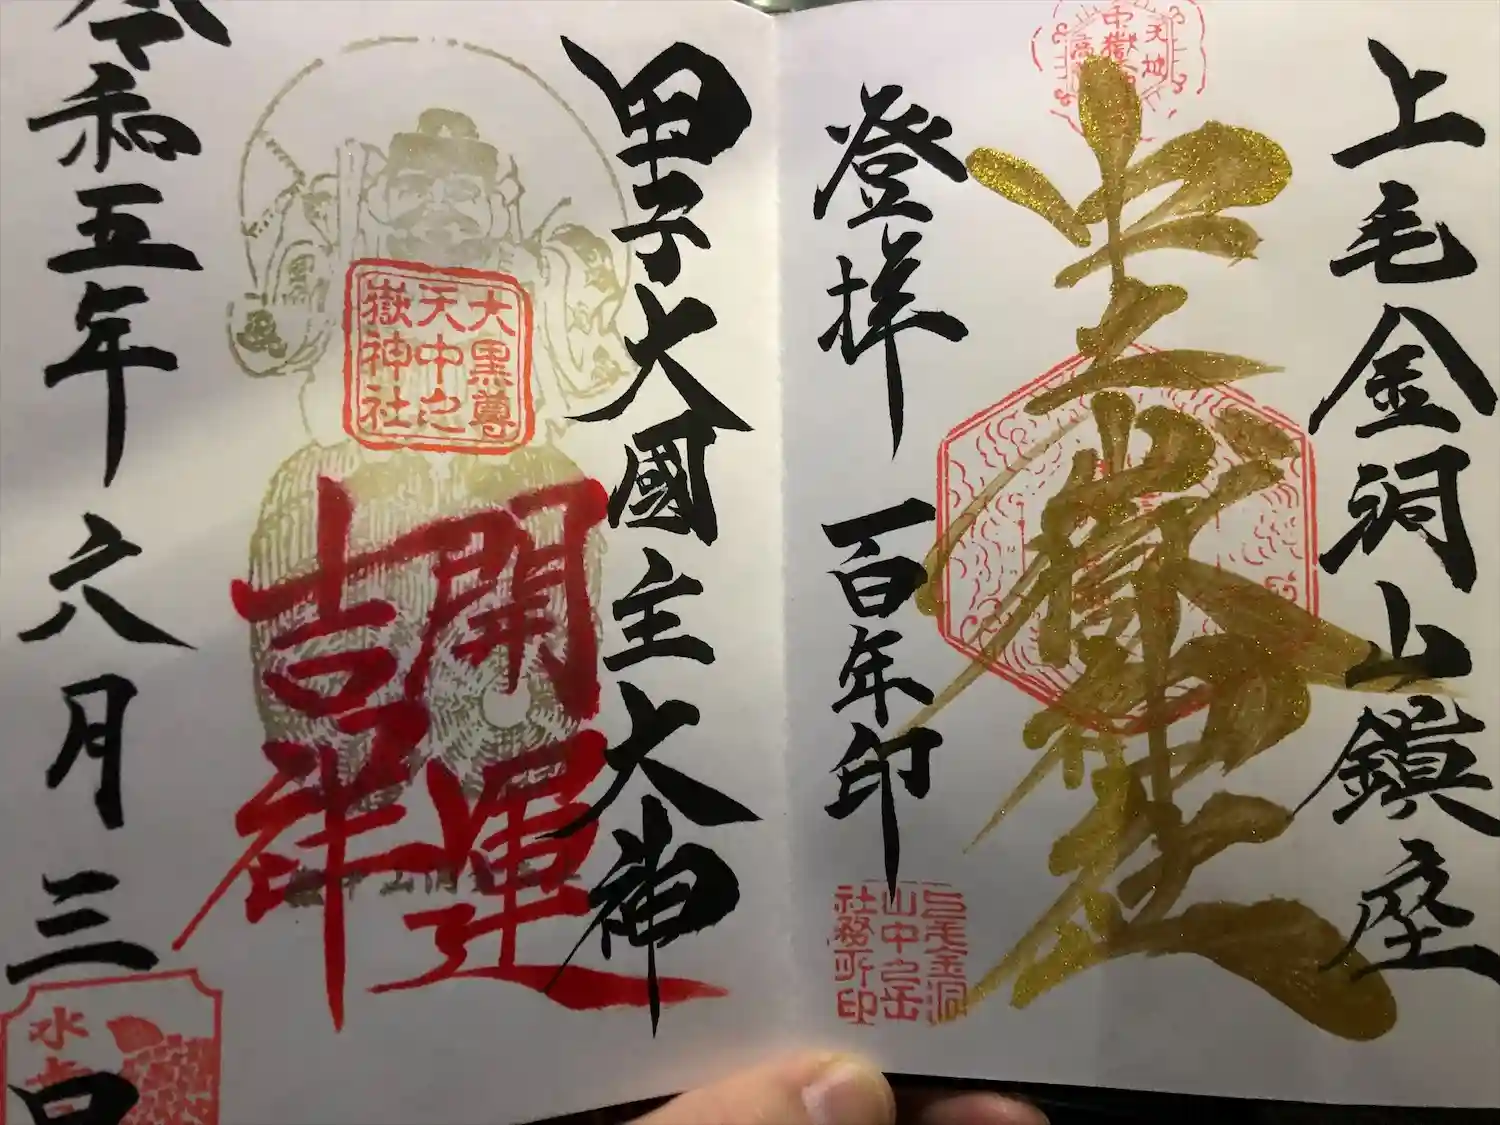 上毛金洞山鎮座
中之嶽神社
登拝 百年印
上毛金洞
山中之岳
社務所印
甲子大國主大神
大黒尊
天中之
嶽神社
開運
吉祥
令和五年 六月三日